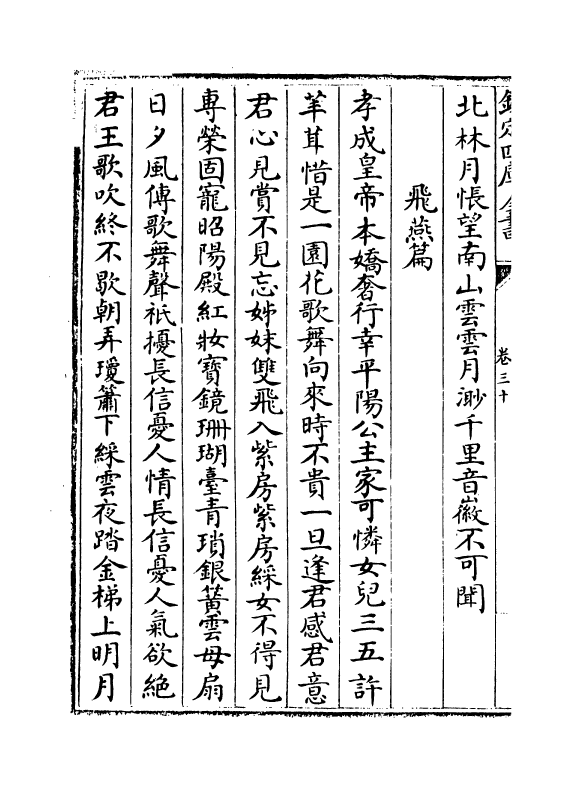 欽定四庫全書
卷三十
北林月悵望南山雲雲月渺千里音徽不可聞
飛燕篇
孝成皇帝本嬌奢行幸平陽公主家可憐女兒三五許
茸惜是一園花歌舞向來時不貴一旦逢君感君意
君心見賞不見忘姊妹雙飛入紫房紫房綵女不得見
專榮固寵昭陽殿紅妝寶鏡珊瑚臺青瑣銀簧雲母扇
日夕風傳歌舞聲祇擾長信憂人情長信憂人氣欲絶
君王歌吹終不歇朝弄瓊簫下綵雲夜踏金梯上明月